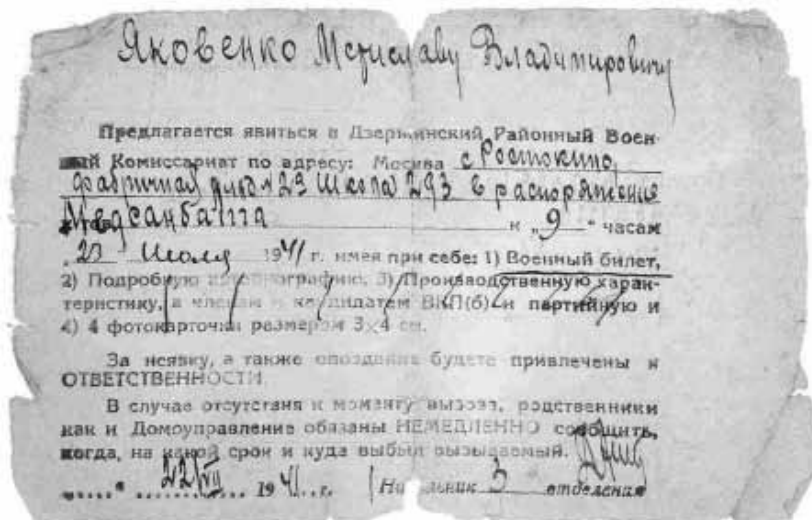 Яковенко Мстиславу Владимировичу
Предлагается явиться в Дзержинский Районный Воен-
ный Комиссариат по адресу: Москва с Ростокино,
Фабричная д. 23 Школа 293 в распоряжение
Медсанбата к „9“ часам
„23 Июля 1941 г. имея при себе: 1) Военный билет,
2) Подробную автобиографию, 3) Производственную харак-
теристику, а членам и кандидатам ВКП(б) и партийную и
4) 4 фотокарточки размером 3×4 см.
За неявку, а также опоздание будете привлечены к
ОТВЕТСТВЕННОСТИ
В случае отсутствия к моменту вызова, родственники
как и Домоуправление обязаны НЕМЕДЛЕННО сообщить,
когда, на какой срок и куда выбыл вызываемый.
22/VII 1941 г. Начальник 3 отделения